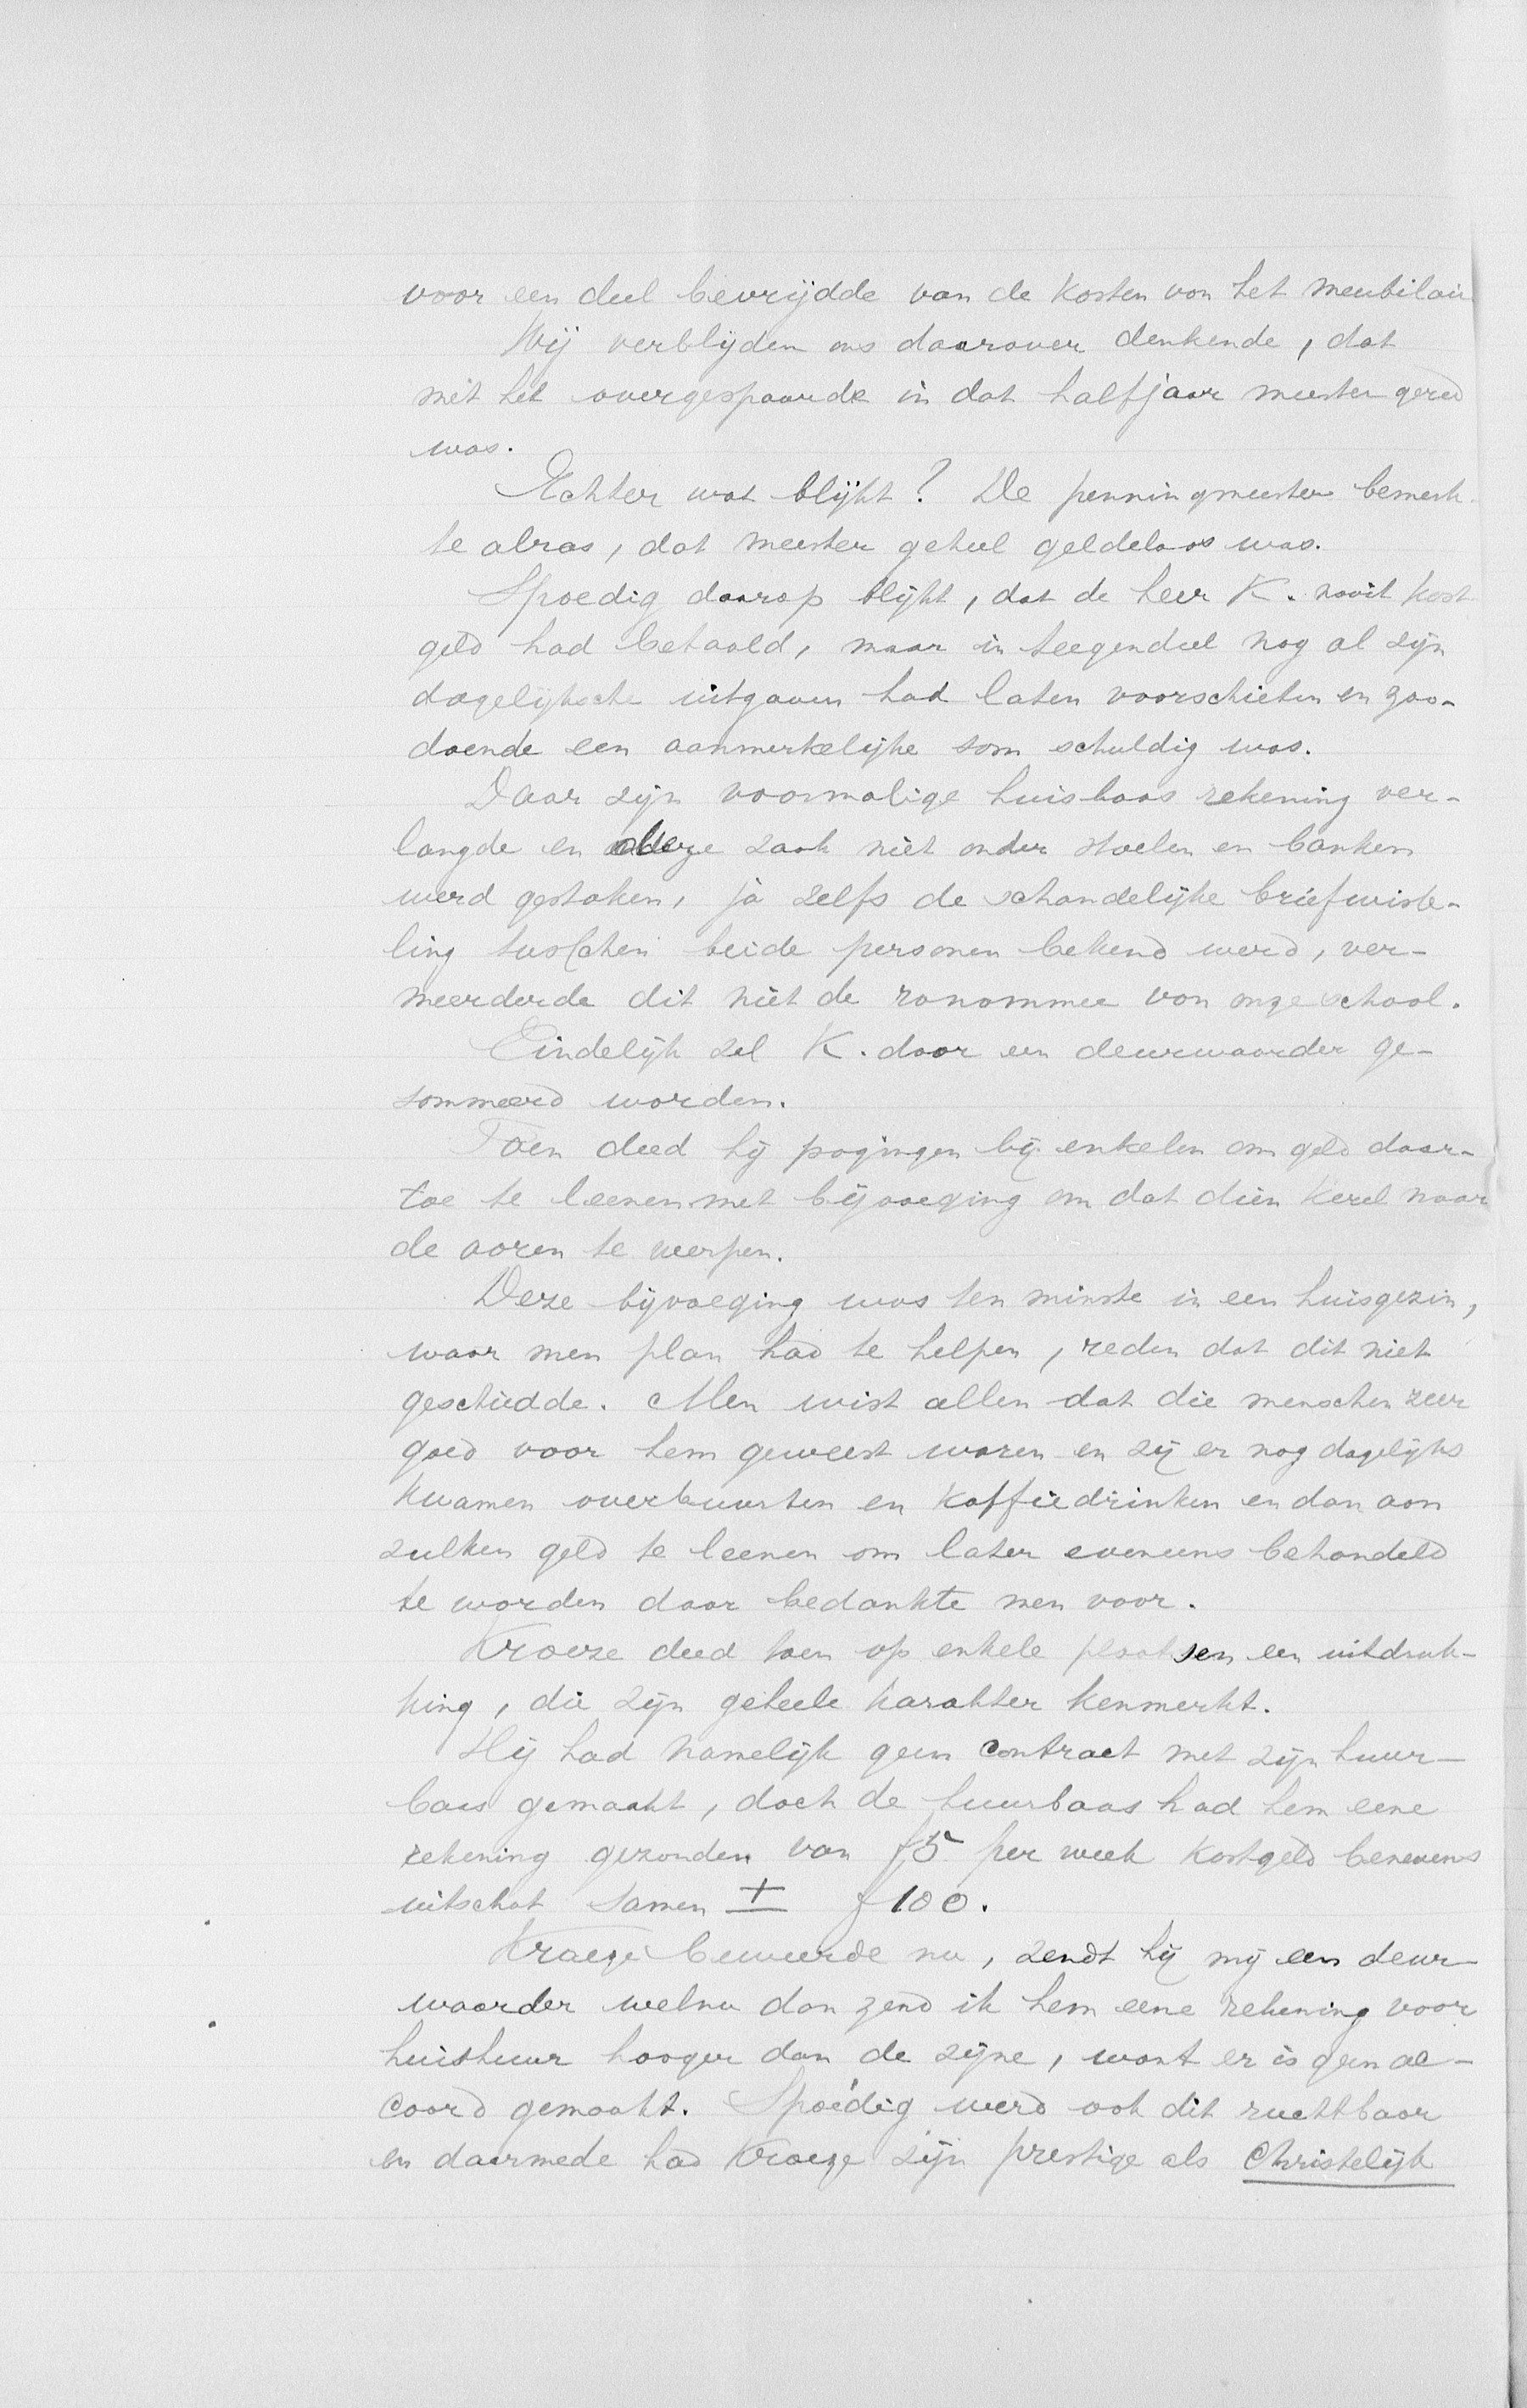 voor een deel bevrijdde van de kosten van het meubilair
Wij verblijden ons daarover denkende, dat
met het overgespaarde in dat halfjaar meester gered
was.
Echter wat blijkt? De penningmeester bemerk-
te alras, dat meester geheel geldeloos was.
Spoedig daarop blijkt, dat de heer K. nooit kost
geld had betaald, maar in teegendeel nog al zijn
dagelijksche uitgaven had laten voorschieten en zoo-
doende een aanmerkelijke som schuldig was.
Daar zijn voormalige huisbaas rekening ver-
langde en deze zaak niet onder stoelen en banken
werd gestoken, ja zelfs de schandelijke briefwisse-
ling tusschen beide personen bekend werd, ver-
meerderde dit niet de ronommee van onze school.
Eindelijk zal K. door een deurwaarder ge-
sommeerd worden.
Toen deed hij pogingen bij enkelen om geld daar-
toe te leenen met bijvoeging om dat dien kerel naar
de ooren te werpen.
Deze bijvoeging was ten minste in een huisgezin,
waar men plan had te helpen, reden dat dit niet
geschiedde. Men wist allen dat die menschen zeer
goed voor hem geweest waren en zij er nog dagelijks
kwamen overbuurten en koffiedrinken en dan aan
zulken geld te leenen om later eveneens behandeld
te worden daar bedankte men voor.
Kroeze deed toen op enkele plaatsen een uitdruk-
king, die zijn geheele karakter kenmerkt.
Hij had namelijk geen contract met zijn huur-
baas gemaakt, doch de huurbaas had hem eene
rekening gezonden van f5 per week kostgeld benevens
uitschot samen ± f 100.
Kroeze beweerde nu, zendt hij mij een deur-
waarder welnu dan zend ik hem eene rekening voor
huishuur hooger dan de zijne, want er is geen ac-
coord gemaakt. Spoedig werd ook dit ruchtbaar
en daarmede had Kroeze zijn prestige als Christelijk